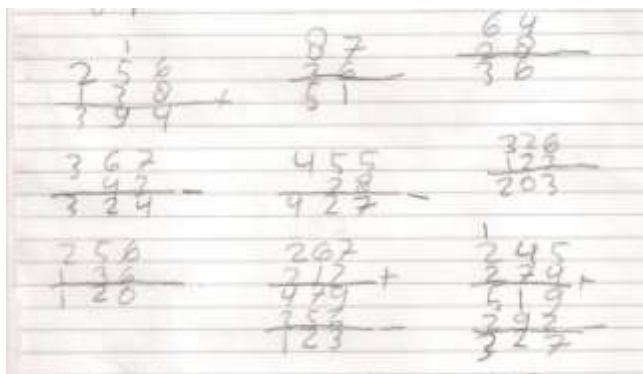 1
2 5 6
1 3 8 +
3 9 4
8 7
3 6 -
5 1
6 4
2 8 -
3 6
3 6 7
4 3 -
3 2 4
4 5 5
2 8 -
4 2 7
3 2 6
1 2 3 -
2 0 3
2 5 6
1 3 6 -
1 2 0
2 6 7
2 1 2 +
4 7 9
-
1 2 3
1
2 4 5
2 7 4 +
5 1 9
-
3 2 7